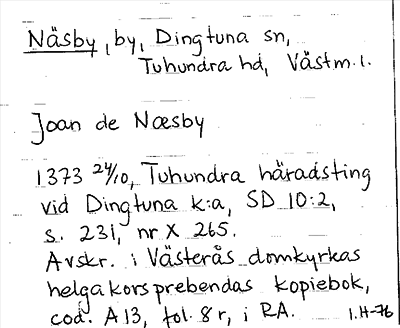 Näsby, by, Dingtuna sn,
Tuhundra hd, Västm. l.
Joan de Næsby
1373 24/10, Tuhundra häradsting
vid Dingtuna k:a, SD 10:2,
s. 231, nr X 265.
Avskr. i Västerås domkyrkas
helgakorsprebendas kopiebok,
cod. A 13, fol. 8 r, i RA.
I.H-76